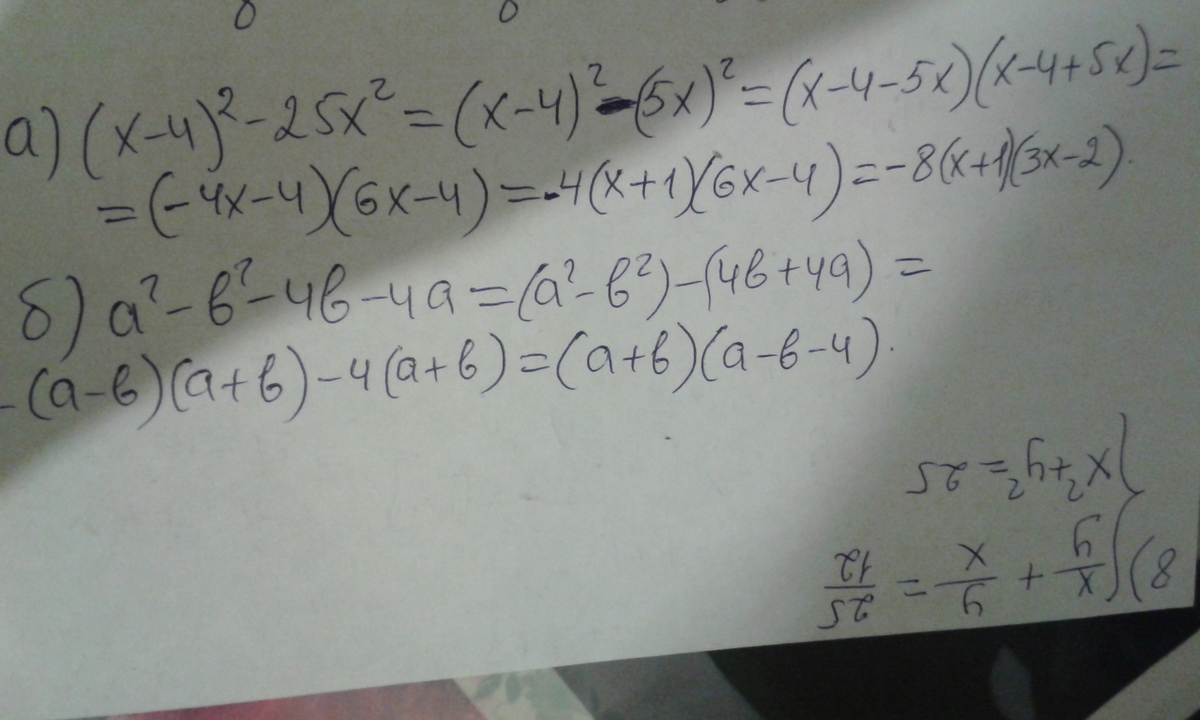 а) (x-4)² - 25x² = (x-4)² - (5x)² = (x-4-5x)(x-4+5x) =
= (-4x-4)(6x-4) = -4(x+1)(6x-4) = -8(x+1)(3x-2).
б) a² - в² - 4в - 4a = (a² - в²) - (4в + 4a) =
- (a-в)(a+в) - 4(a+в) = (a+в)(a-в-4).
8) { x/y + y/x = 25/12
{ x² + y² = 25